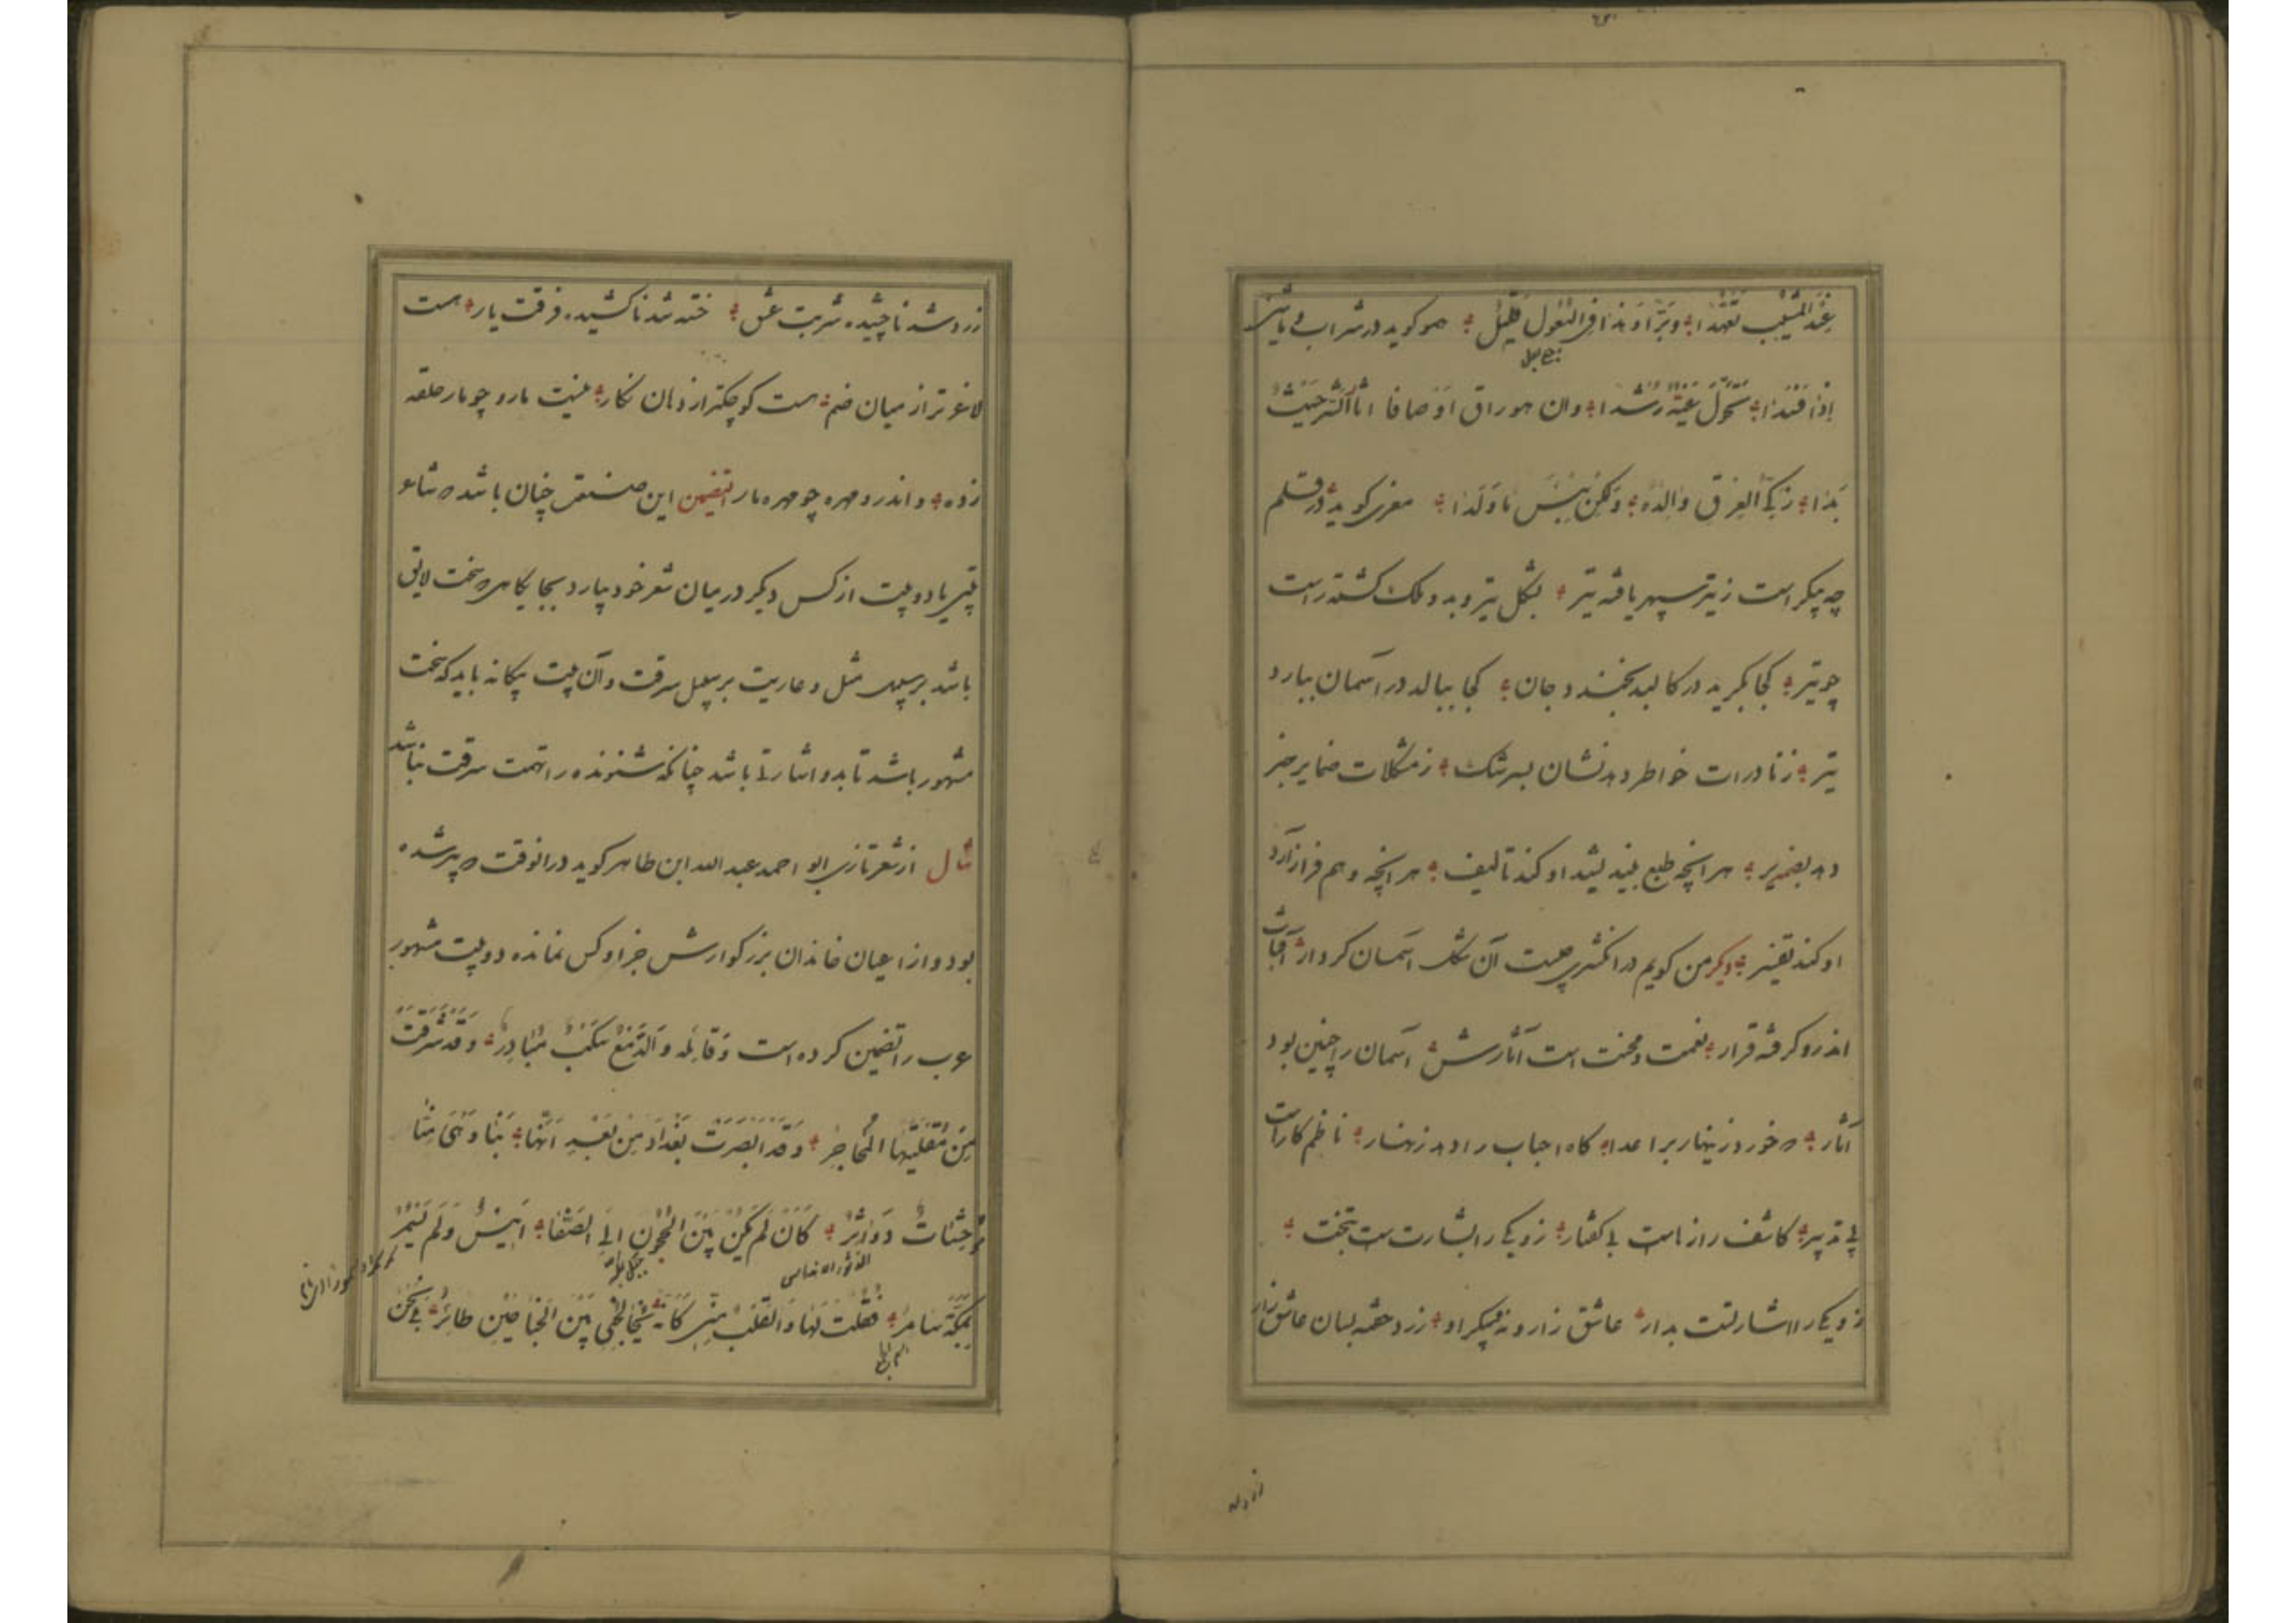 عند المشیب تعهدا وبرا وهذا فی الفعول قلیل همو کوید در شراب
اذا قتدا تحول غیه رشدا وان هو راق اوصافا اثا اکثر حیث
بدا زکی العرق والده ولکن بیس ما ولدا معزی کوید در قلم
چه پیکر است ز تیر سپهر یافته تیر بشکل تیر و بدو ملک کشته راست
چو تیر کجا بکرید در کالبد بخندد جان کجا ببالد در آسمان ببارد
تیر ز نادرات خواطر دهد نشان بسرشک ز مشکلات ضمایر خبر
دهد بضمیر هر انچه طبع بیندیشد او کند تالیف هر انچه وهم فراز آرد
او کند تفسیر دیکر من کویم در انکشتری چیست آن شکل اسمان کردار آفتاب
اندرو کرفته قرار نعمت و محنت است آثارش اسمان را چنین بود
آثار که خورد زینهار بر اعدا کاه احباب را دهد زنهار ناظم کار است
بی تدبیر کاشف راز است بی کفتار زو یکی را بشارتست بتخت
زو یکی را اشارتست بدار عاشق زار و نه پیکر او زرد خفته بسان عاشق زار
زرد شد ناچشیده شربت عشق خسته شد ناکشیده فرقت یار هست
لاغرتر از میان صنم هست کوچکتر از دهان نکار نیست مار و چو مار حلقه
زده واندرو مهره چو مهره مار التضمین این صنعتی چنان باشد که شاعر
بیتی یا دو بیت از کس دیکر در میان شعر خود بیارد بجایکاهی که سخت لایق
باشد بر سپیل مثل و عاریت بر سپیل سرقت وآن بیت بیکانه باید که سخت
مشهور باشد تا بدو اشارتی باشد چنانکه شنونده را تهمت سرقت نباشد
مثال از شعر تازی ابو احمد عبد الله ابن طاهر کوید در انوقت که پیر شده
بود و از اعیان خاندان بزرکوارش جز او کس نمانده دو بیت مشهور
عرب را تضمین کرده است وقائله والدمع سکب مبادر وقد شرقت
من مقلتیها المحاجر وقد ابصرت بغداد من بعد انسها بنا وهی منا
موحشات دواثر کان لم یکن بین الحجون الی الصفا انیس ولم یسمر
بمکة سامر فقلت لها والقلب منی کانه یخالجنی بین الجناحین طائر بلی نحن
زرد شد